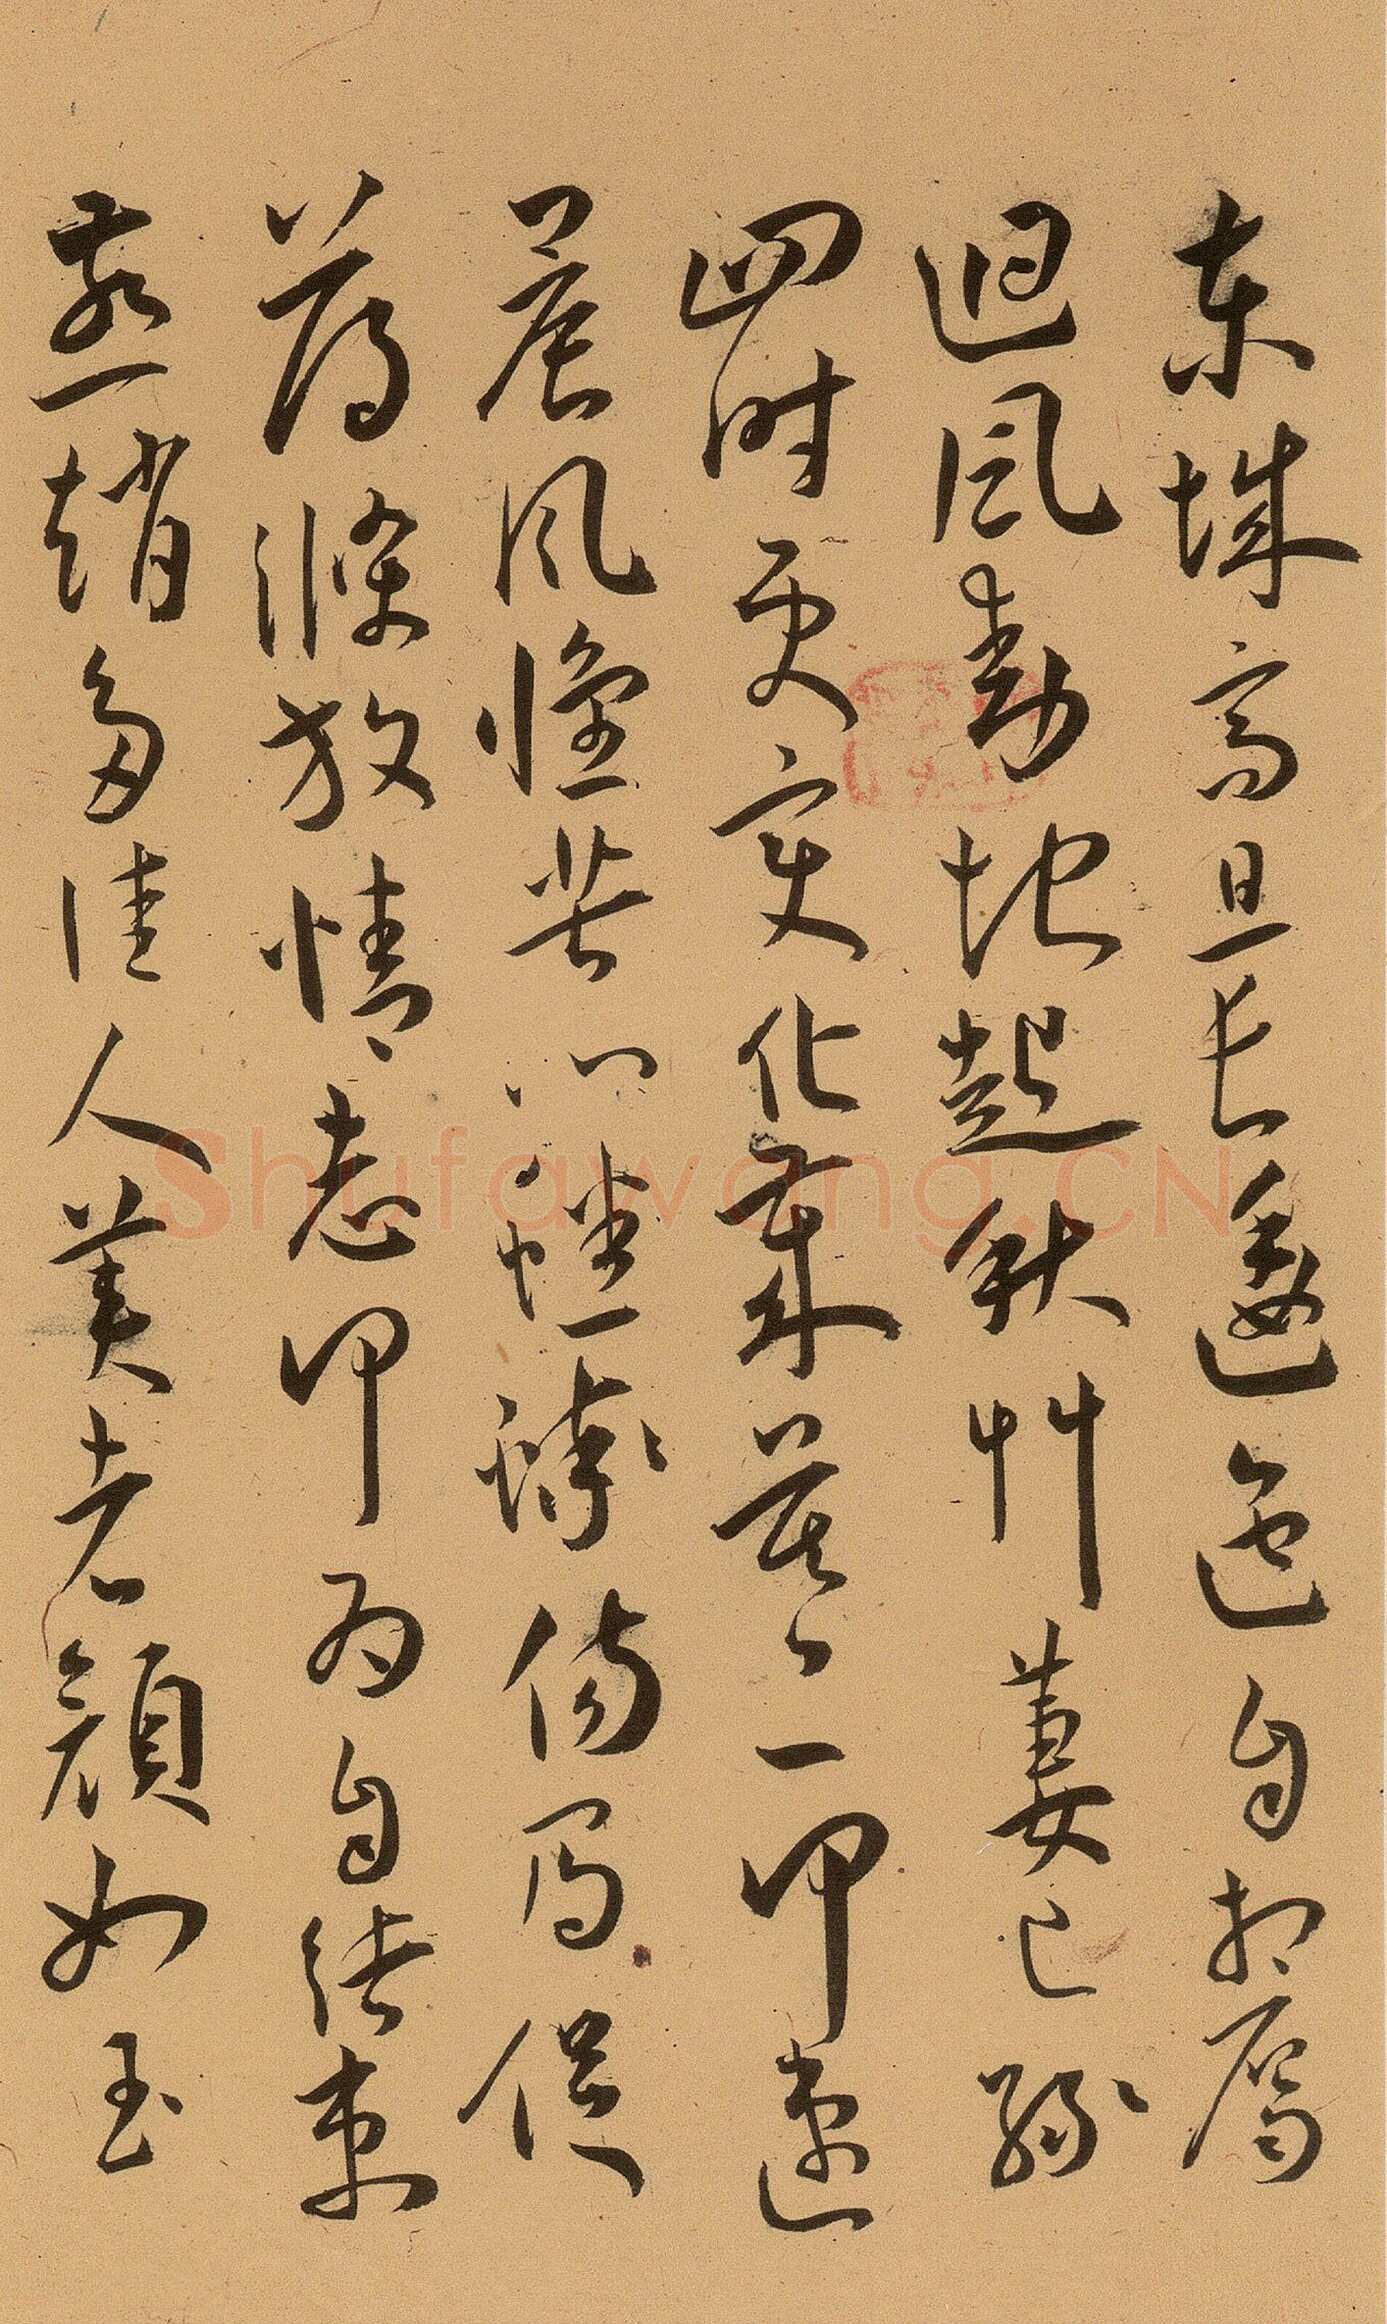 東城高且長逶迤自相屬
迴風動地起秋艸萋已緑
四時更變化歲暮一何速
晨風懷苦心蟋蟀傷局促
蕩滌放情志何為自結束
燕趙多佳人美者顏如玉
Shufawang.CN